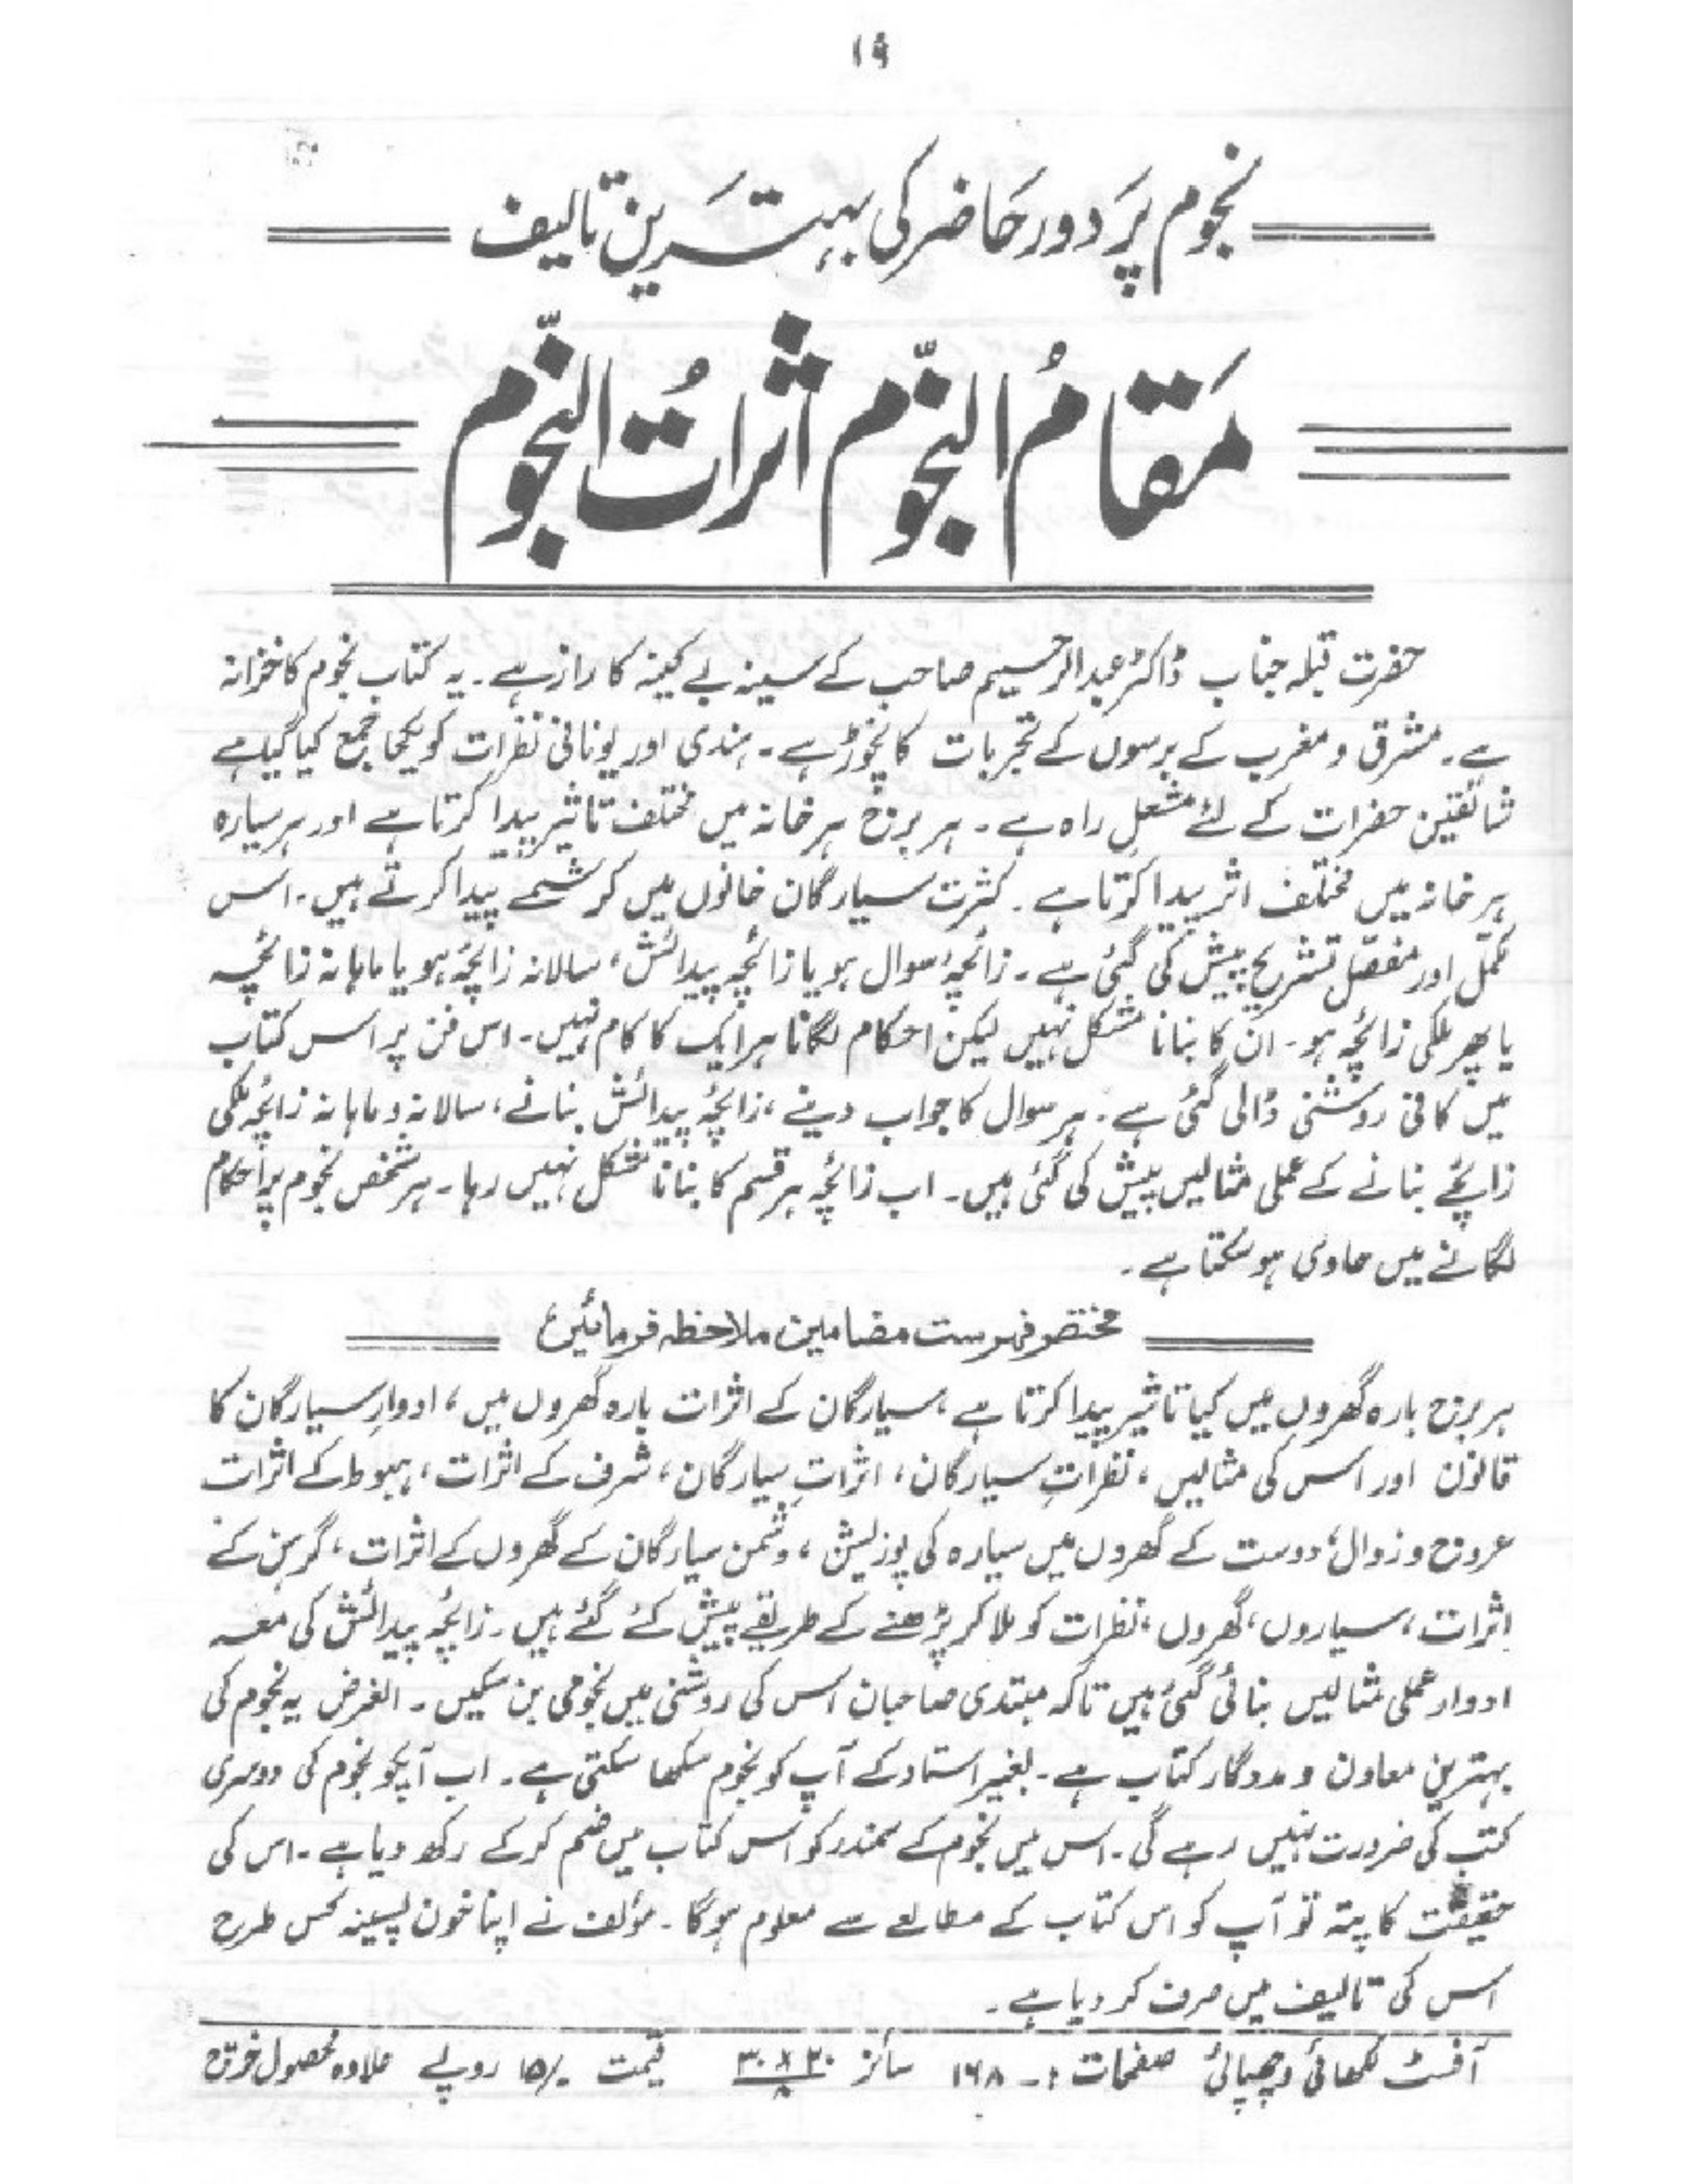 ۱۹
نجوم پر دور حاضر کی بہترین تالیف
مَقامُ النجّوم اثراتُ النجّوم
حضرت قبلہ جناب ڈاکٹر عبدالرحیم صاحب کے سینہ بے کینہ کا راز ہے۔ یہ کتاب نجوم کا خزانہ
ہے۔ مشرق و مغرب کے برسوں کے تجربات کا نچوڑ ہے۔ ہندی اور یونانی نظرات کو یکجا جمع کیا گیا ہے
شائقین حضرات کے لئے مشعل راہ ہے۔ ہر برج ہر خانہ میں مختلف تاثیر پیدا کرتا ہے اور ہر سیارہ
ہر خانہ میں مختلف اثر پیدا کرتا ہے۔ کثرت سیارگان خانوں میں کرشمے پیدا کرتے ہیں۔ اس
مکمل اور مفصّل تشریح پیش کی گئی ہے۔ زائچۂ سوال ہو یا زائچہ پیدائش، سالانہ زائچہ ہو یا ماہانہ زائچہ
یا پھر ملکی زائچہ ہو۔ ان کا بنانا مشکل نہیں لیکن احکام لگانا ہر ایک کا کام نہیں۔ اس فن پر اس کتاب
میں کافی روشنی ڈالی گئی ہے۔ ہر سوال کا جواب دینے، زائچۂ پیدائش بنانے، سالانہ و ماہانہ زائچہ ملکی
زائچے بنانے کے عملی مثالیں پیش کی گئی ہیں۔ اب زائچہ ہر قسم کا بنانا مشکل نہیں رہا۔ ہر شخص نجوم پر احکام
لگانے میں حاوی ہو سکتا ہے۔
مختصر فہرست مضامین ملاحظہ فرمائیں
ہر برج بارہ گھروں میں کیا تاثیر پیدا کرتا ہے، سیارگان کے اثرات بارہ گھروں میں، ادوارِ سیارگان کا
قانون اور اس کی مثالیں، نظراتِ سیارگان، اثراتِ سیارگان، شرف کے اثرات، ہبوط کے اثرات
عروج و زوال، دوست کے گھروں میں سیارہ کی پوزیشن، دشمن سیارگان کے گھروں کے اثرات، گرہن کے
اثرات، سیاروں، گھروں، نظرات کو ملا کر پڑھنے کے طریقے پیش کئے گئے ہیں۔ زائچۂ پیدائش کی معہ
ادوار عملی مثالیں بنائی گئی ہیں تاکہ مبتدی صاحبان اس کی روشنی میں نجومی بن سکیں۔ الغرض یہ نجوم کی
بہترین معاون و مددگار کتاب ہے۔ بغیر استاد کے آپ کو نجوم سکھا سکتی ہے۔ اب آپکو نجوم کی دوسری
کتب کی ضرورت نہیں رہے گی۔ اس میں نجوم کے سمندر کو اس کتاب میں ضم کر کے رکھ دیا ہے۔ اس کی
حقیقت کا پتہ تو آپ کو اس کتاب کے مطالعے سے معلوم ہوگا۔ مؤلف نے اپنا خون پسینہ کس طرح
اس کی تالیف میں صرف کر دیا ہے۔
آفسٹ لکھائی و چھپائی صفحات :۔ ۱۶۸ سائز ۲۰×۳۰/۸ قیمت ۱۵/۰ روپے علاوہ محصول خرچ